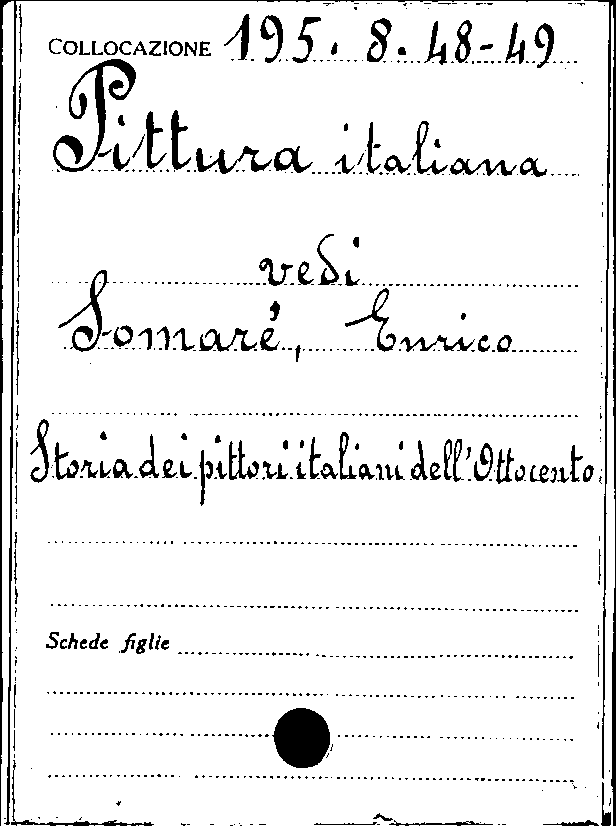 COLLOCAZIONE 195. 8. 48-49
Pittura italiana
vedi
Somaré, Enrico
Storia dei pittori italiani dell'Ottocento
Schede figlie